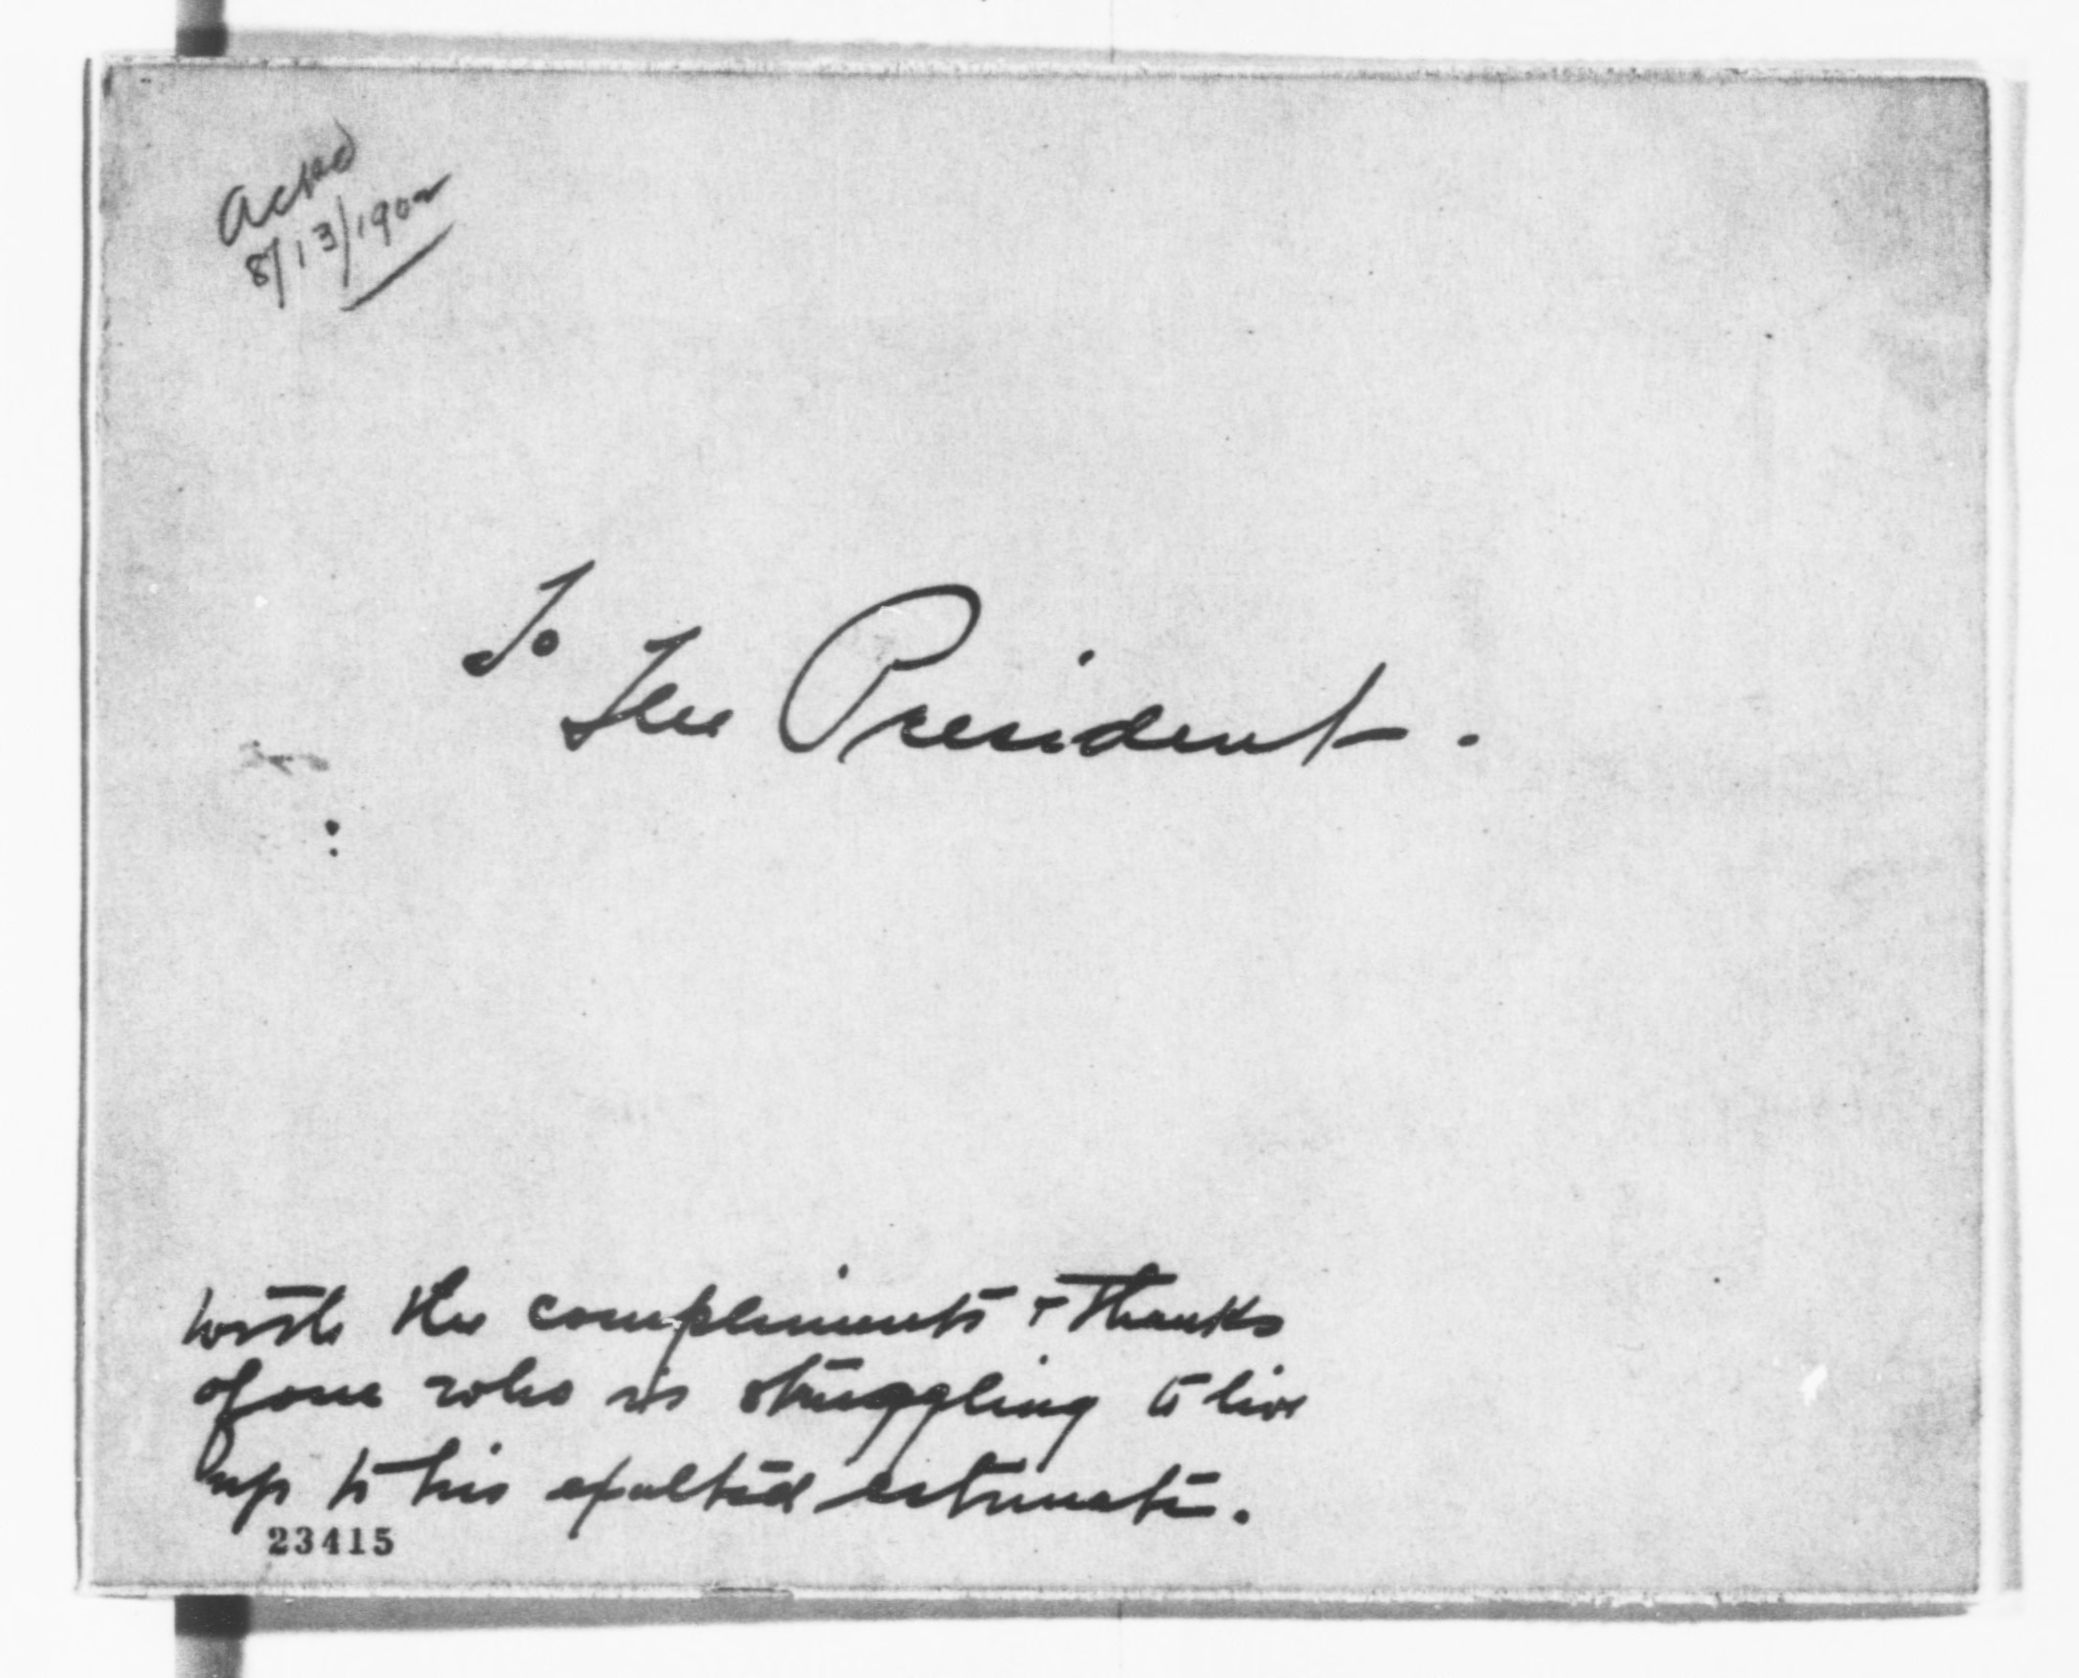 Ackd
8/13/1902
To
The President.
with the compliments + thanks
of one who is struggling to live
up to his exalted estimate.
23415